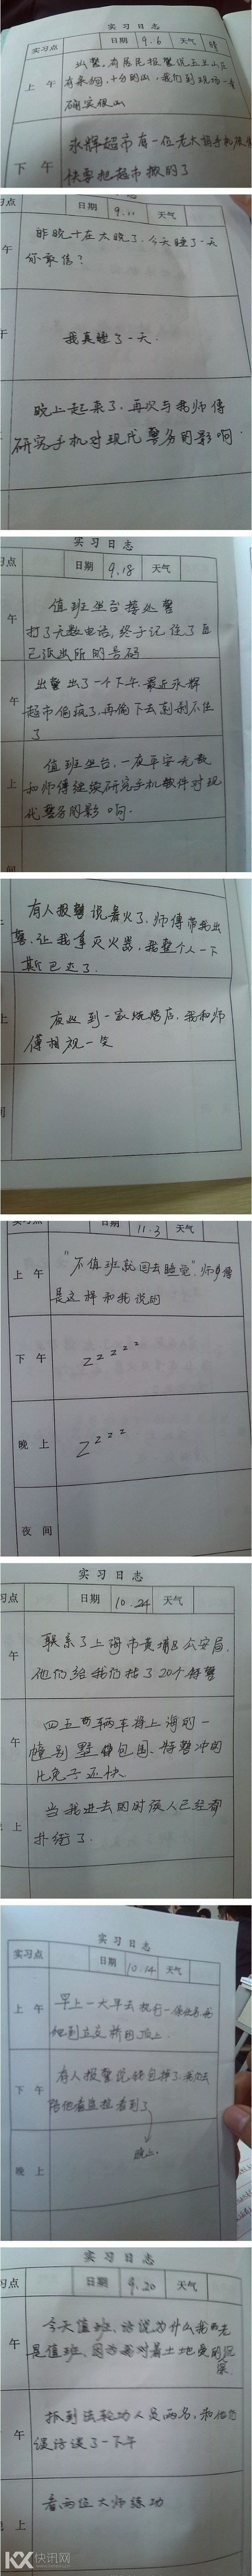 实习日志
实习点 日期 9.6 天气 晴
上午 出警。有居民报警说五上山
有条狗,十分凶,我们到现场一看
确实很凶
下午 永辉超市有一位老太偷手机
快要把超市掀的了
习点 日期 9.11 天气
午 昨晚十在太晚了,今天睡了一天
你敢信?
午 我真睡了一天.
晚上起来了,再次与我师傅
研究手机对现代警务的影响.
实习日志
习点 日期 9.18 天气
午 值班坐台接处警
打了无数电话,终于记住了自
己派出所的号码
午 出警出了一个下午.最近永辉
超市偷疯了,再偷下去刹不住
了
上 值班坐台,一夜平安无数
和师傅继续研究手机软件对现
代警务的影响.
间
有人报警说着火了,师傅带我出
警,让我拿灭火器,我整个人一下
斯巴达了.
上 夜巡到一家烧烤店,我和师
傅相视一笑
间
实习点 日期 11.3 天气
上午 "不值班就回去睡觉".师傅
是这样和我说的
下午 zzzzz
晚上 zzzz
夜间
实习日志
习点 日期 10.24 天气
午 联系了上海市黄埔区公安局,
他们给我们找了20个特警
午 四五两车将上海的一
幢别墅包围、特警冲的
比兔子还快
上 当我进去的时候人已经都
扑街了.
实习日志
实习点 日期 10.14 天气
上午 早上一大早去执行一保业务我
们到立交桥的顶上.
下午 有人报警说钱包掉了.我们去
陪他看监控看到了
晚上.
晚上
实习日志
习点 日期 9.20 天气
午 今天值班、话说为什么我老
是值班、因为我对着土地爱的深
深
午 抓到法轮功人员两名,和他们
谈话谈了一下午
上 看两位大师练功
KX 快讯网